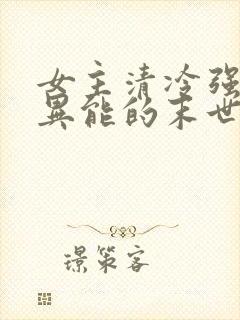 女主清冷强
异能的末世
璟策客